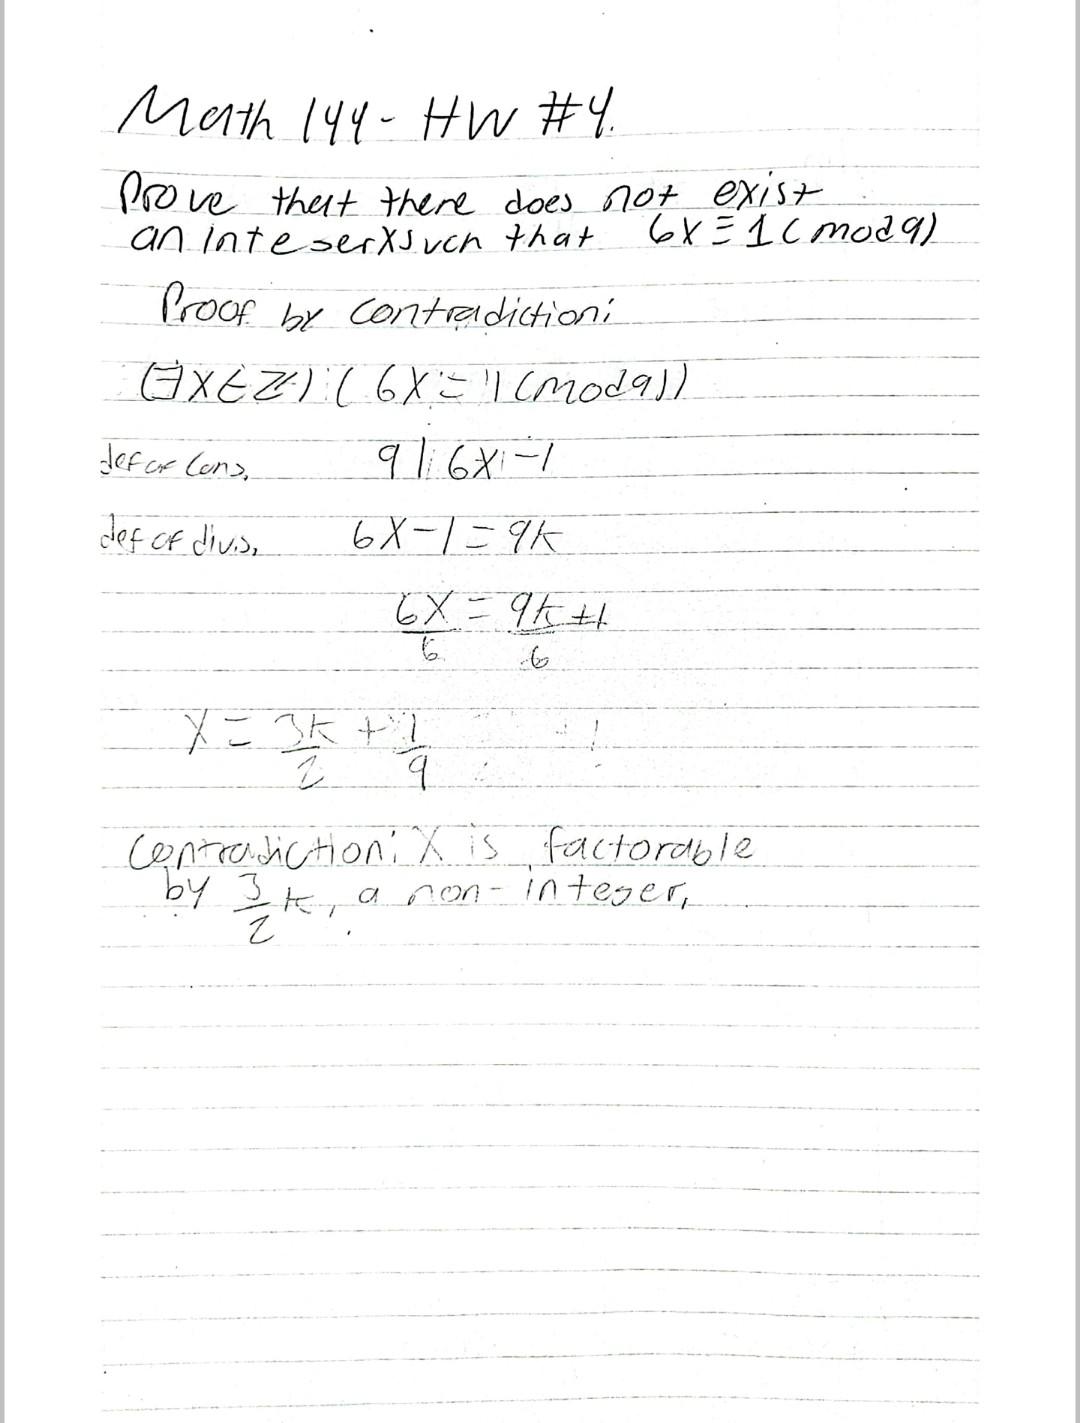 Math 144 - HW #4.
Prove that there does not exist
an integer x such that 6x ≡ 1 (mod 9)
Proof by contradiction:
(∃x∈ℤ) (6x ≡ 1 (mod 9))
def of cong. 9 | 6x - 1
def of divis. 6x - 1 = 9k
6x/6 = 9k + 1/6
x = 3k/2 + 1/9
Contradiction: x is factorable
by 3/2 k, a non-integer.